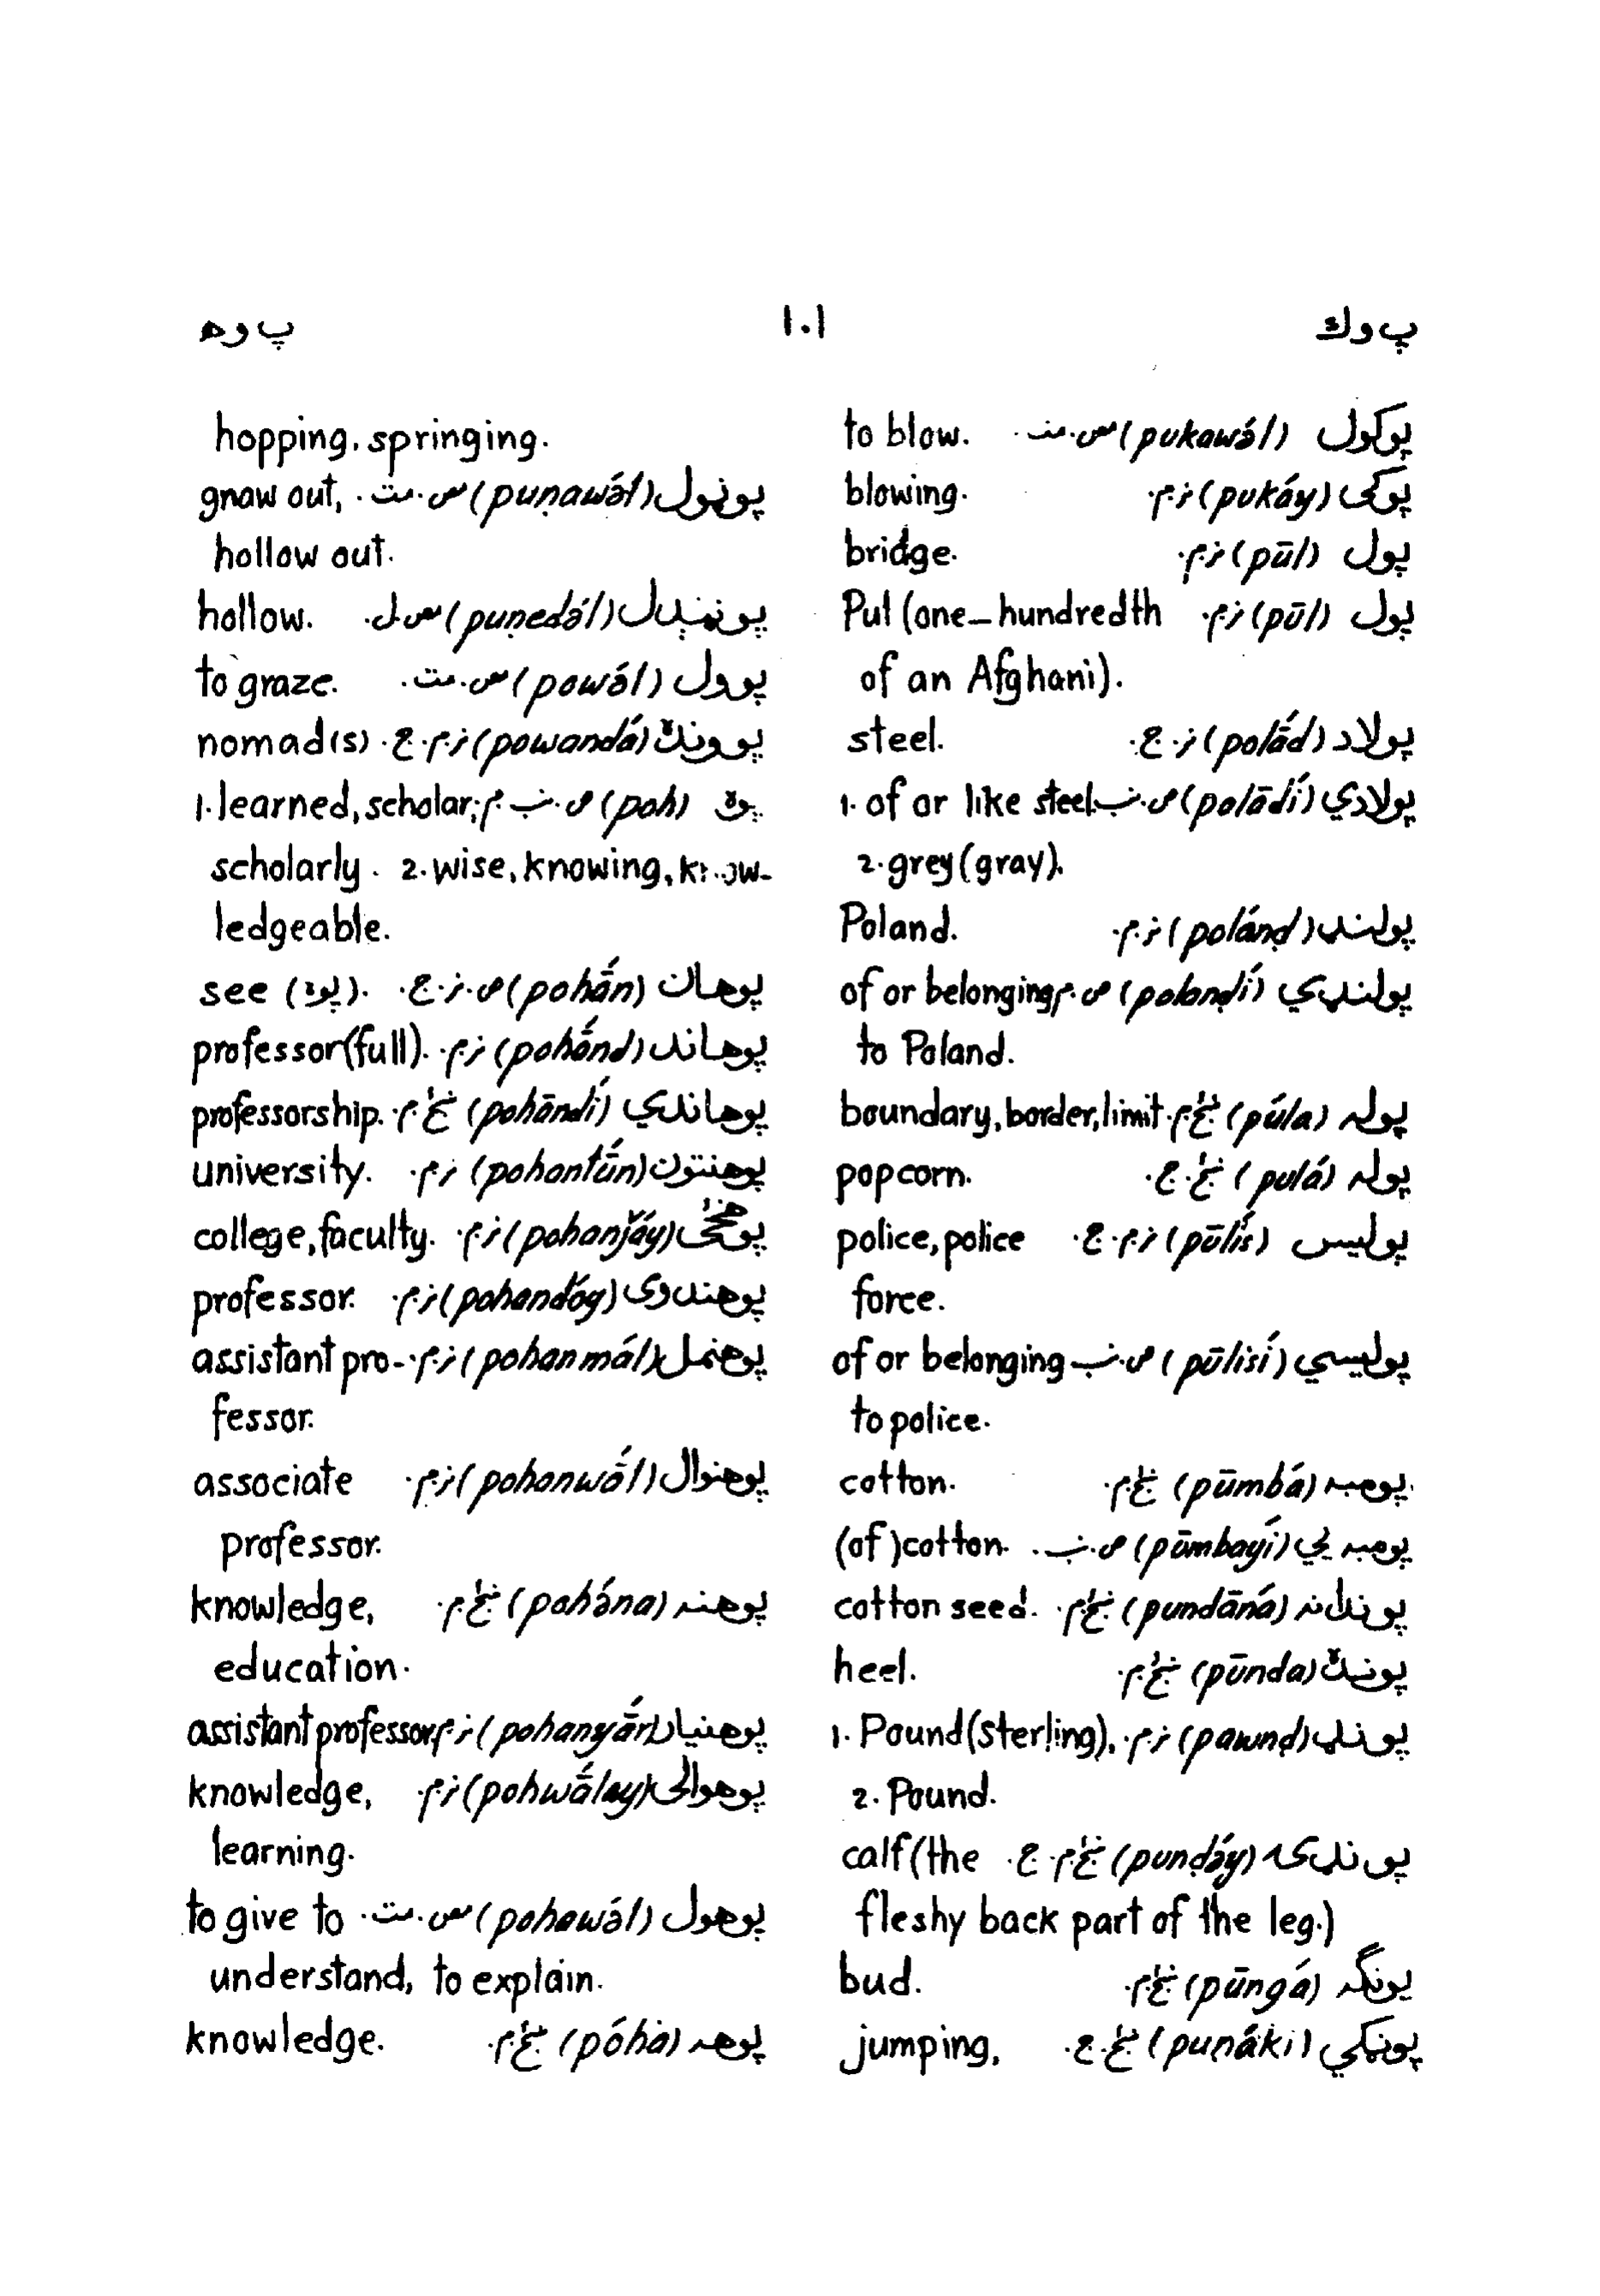 پ وك ۱۰۱ پ وه
پوکول (pukawə́l) س.مت. to blow.
پوکی (pukáy) ن.م. blowing.
پول (pūl) ن.م. bridge.
پول (pūl) ن.م. Pul (one-hundredth
of an Afghani).
پولاد (polā́d) ن.ج. steel.
پولادي (polādí) ص.ب. 1. of or like steel.
2. grey (gray).
پولنډ (polánḍ) ن.م. Poland.
پولنډي (polanḍí) ص.م. of or belonging
to Poland.
پوله (púla) ښځ.م. boundary, border, limit.
پوله (pulá) ښځ.ج. popcorn.
پولیس (pūlís) ن.م.ج. police, police
force.
پولیسي (pūlisí) ص.ب. of or belonging
to police.
پومبه (pūmbá) ښځ.م. cotton.
پومبه یي (pūmbayí) ص.ب. (of) cotton.
پوندانه (pundāná) ښځ.م. cotton seed.
پونده (pūnda) ښځ.م. heel.
پونډ (pawnḍ) ن.م. 1. Pound (sterling),
2. Pound.
پونډۍ (punḍə́y) ښځ.م.ج. calf (the
fleshy back part of the leg.)
پونگه (pūngá) ښځ.م. bud.
پوڼکي (puṇáki) ښځ.ج. jumping,
hopping, springing.
پوڼول (puṇawə́l) س.مت. gnaw out,
hollow out.
پوڼېدل (puṇedə́l) س.ل. hollow.
پوول (powə́l) س.مت. to graze.
پوونده (powandá) ن.م.ج. nomad(s)
پوه (poh) ص.ب.م. 1. learned, scholar;
scholarly. 2. wise, knowing, know-
ledgeable.
پوهان (pohā́n) ص.ن.ج. see (پوه).
پوهاند (pohā́nd) ن.م. professor (full).
پوهاندي (pohāndí) ښځ.م. professorship.
پوهنتون (pohantū́n) ن.م. university.
پوهنځی (pohanǰáy) ن.م. college, faculty.
پوهندوی (pohandóy) ن.م. professor.
پوهنمل (pohanmál) ن.م. assistant pro-
fessor.
پوهنوال (pohanwā́l) ن.م. associate
professor.
پوهنه (pohə́na) ښځ.م. knowledge,
education.
پوهنیار (pohanyā́r) ن.م. assistant professor
پوهوالی (pohwā́lay) ن.م. knowledge,
learning.
پوهول (pohawə́l) س.مت. to give to
understand, to explain.
پوهه (póha) ښځ.م. knowledge.